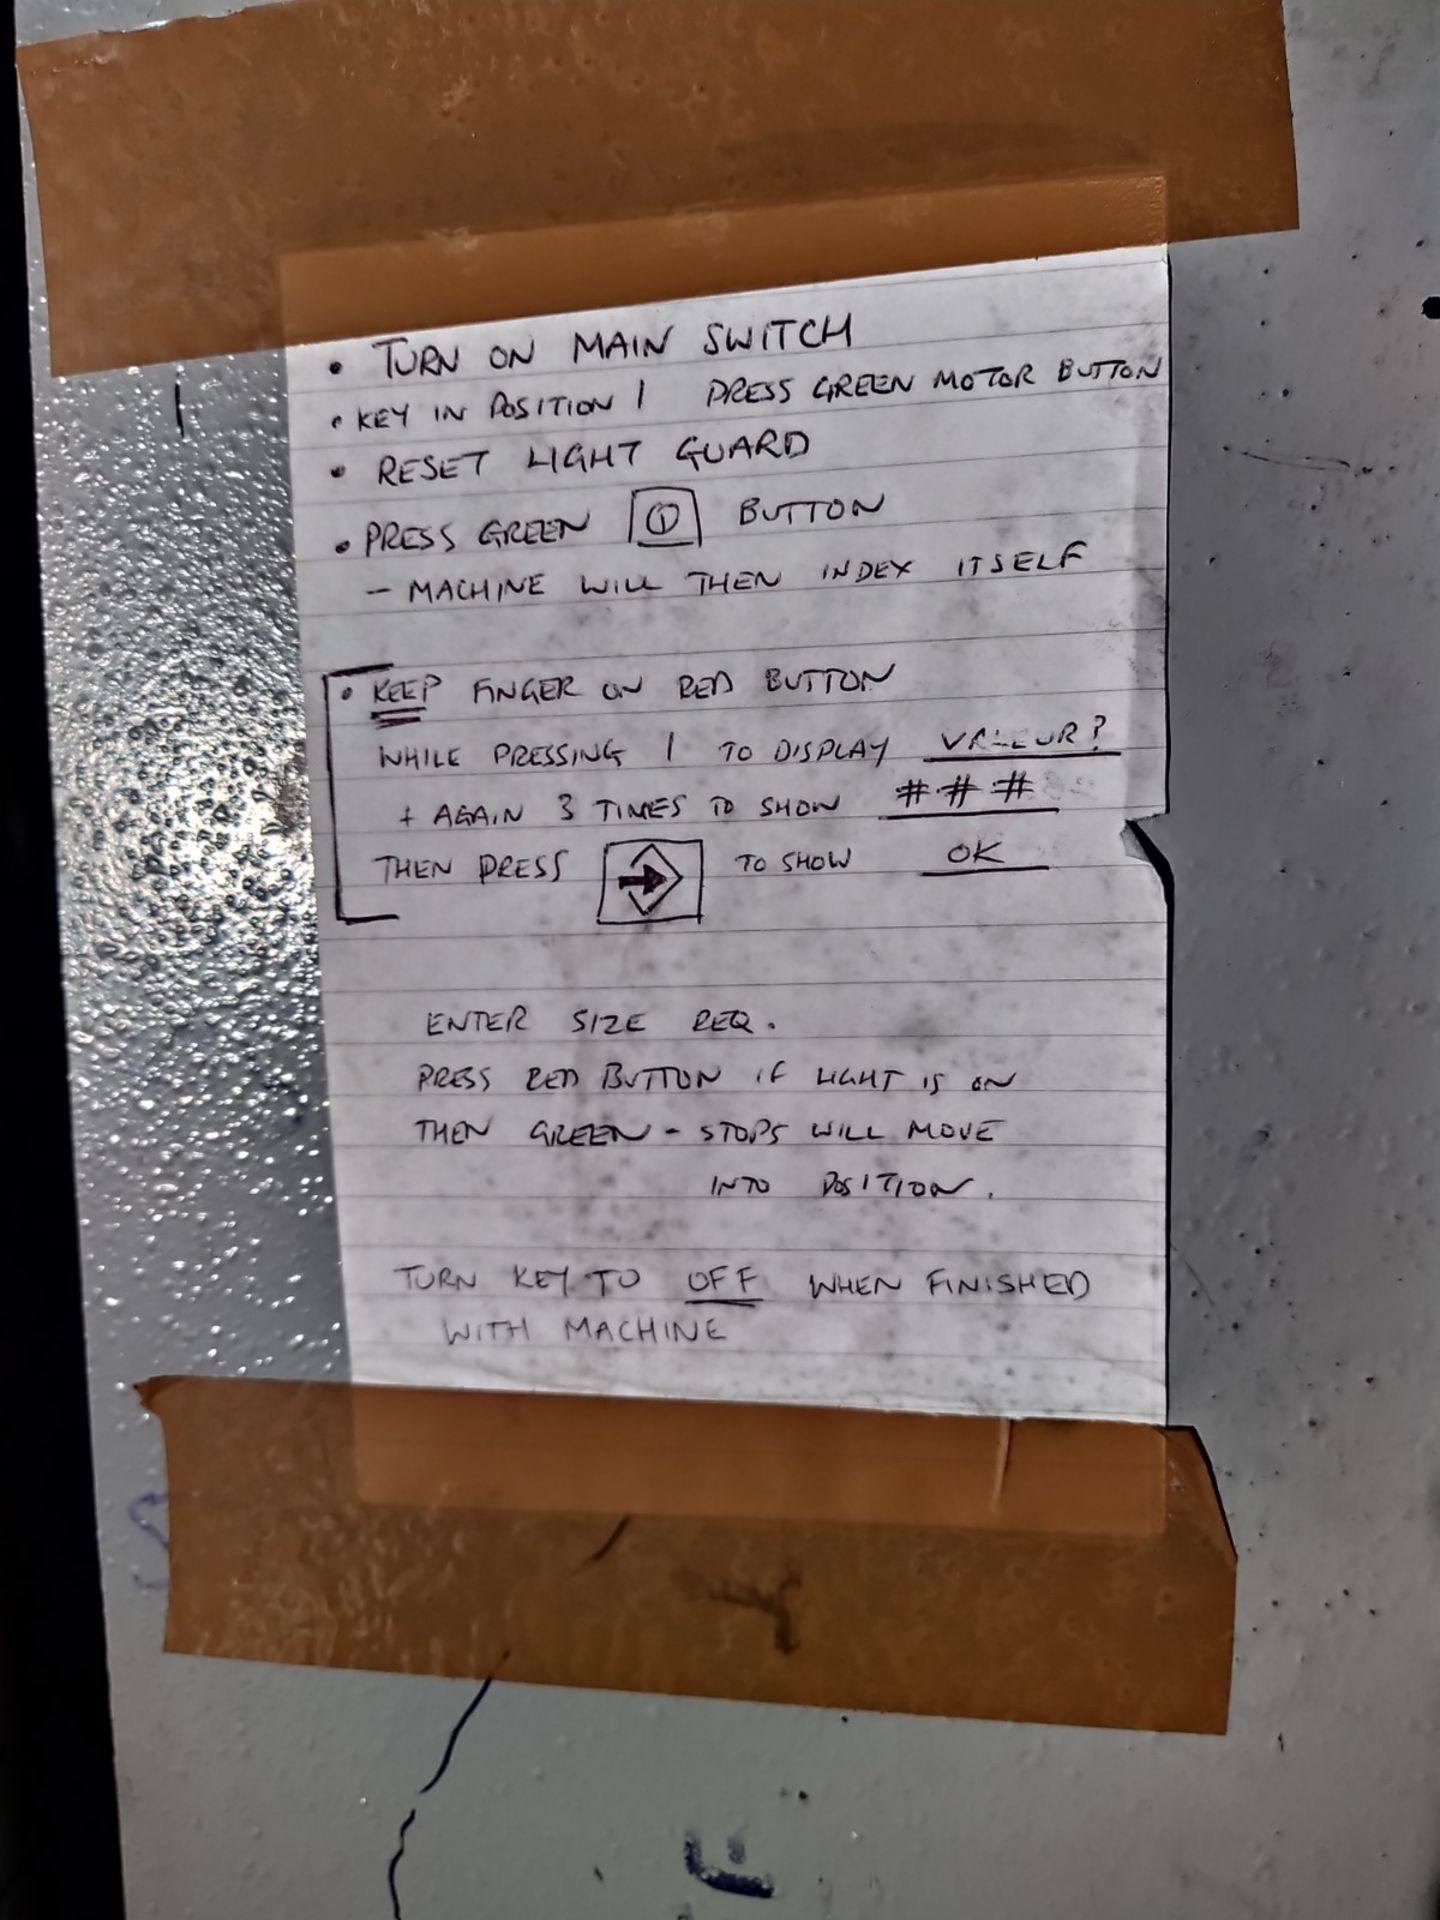 • TURN ON MAIN SWITCH
• KEY IN POSITION 1 PRESS GREEN MOTOR BUTTON
• RESET LIGHT GUARD
• PRESS GREEN BUTTON
– MACHINE WILL THEN INDEX ITSELF
• KEEP FINGER ON RED BUTTON
WHILE PRESSING 1 TO DISPLAY VALEUR?
+ AGAIN 3 TIMES TO SHOW # # #
THEN PRESS → TO SHOW OK
ENTER SIZE REQ.
PRESS RED BUTTON IF LIGHT IS ON
THEN GREEN – STOPS WILL MOVE
INTO POSITION.
TURN KEY TO OFF WHEN FINISHED
WITH MACHINE